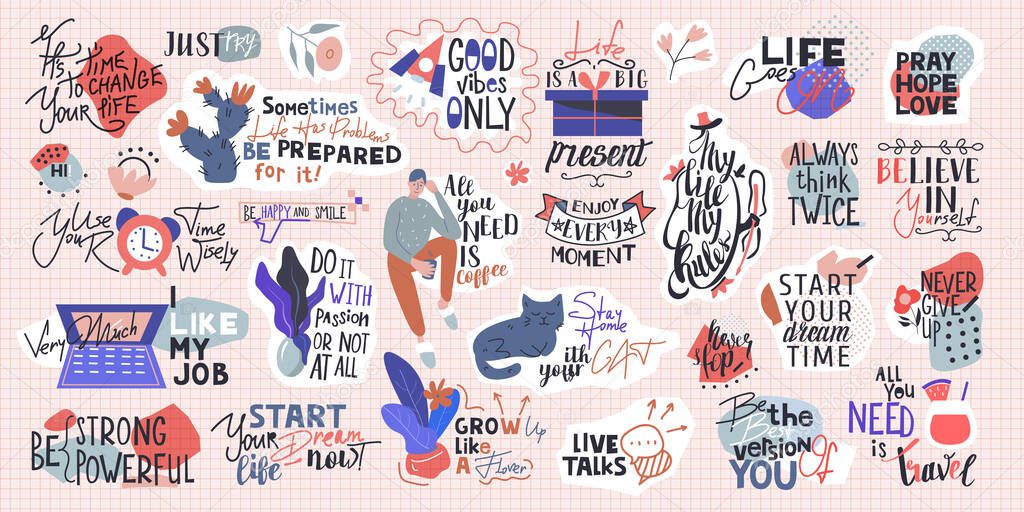 It's
TIME
TO CHANGE
YOUR LIFE
JUST TRY
GOOD
vibes
ONLY
Life
IS A BIG
present
LIFE
Goes
On
PRAY
HOPE
LOVE
Sometimes
Life Has Problems
BE PREPARED
for it!
HI
My
life
My
Rules
ALWAYS
think
TWICE
BELIEVE
IN
Yourself
Use
YouR
Time
Wisely
BE HAPPY AND SMILE
All
you
NEED
IS
Coffee
ENJOY
EVERY
MOMENT
DO IT
WITH
PASSION
OR NOT
AT ALL
START
YOUR
dream
TIME
NEVER
GIVE
UP
Very Much
I
LIKE
MY
JOB
Stay
Home
with
your CAT
never
stop
BE STRONG
POWERFUL
START
Your Dream
life now!
GROW Up
Like
A Flover
LIVE
TALKS
Be the
Best
version Of
YOU
ALL
YOU
NEED
is
travel